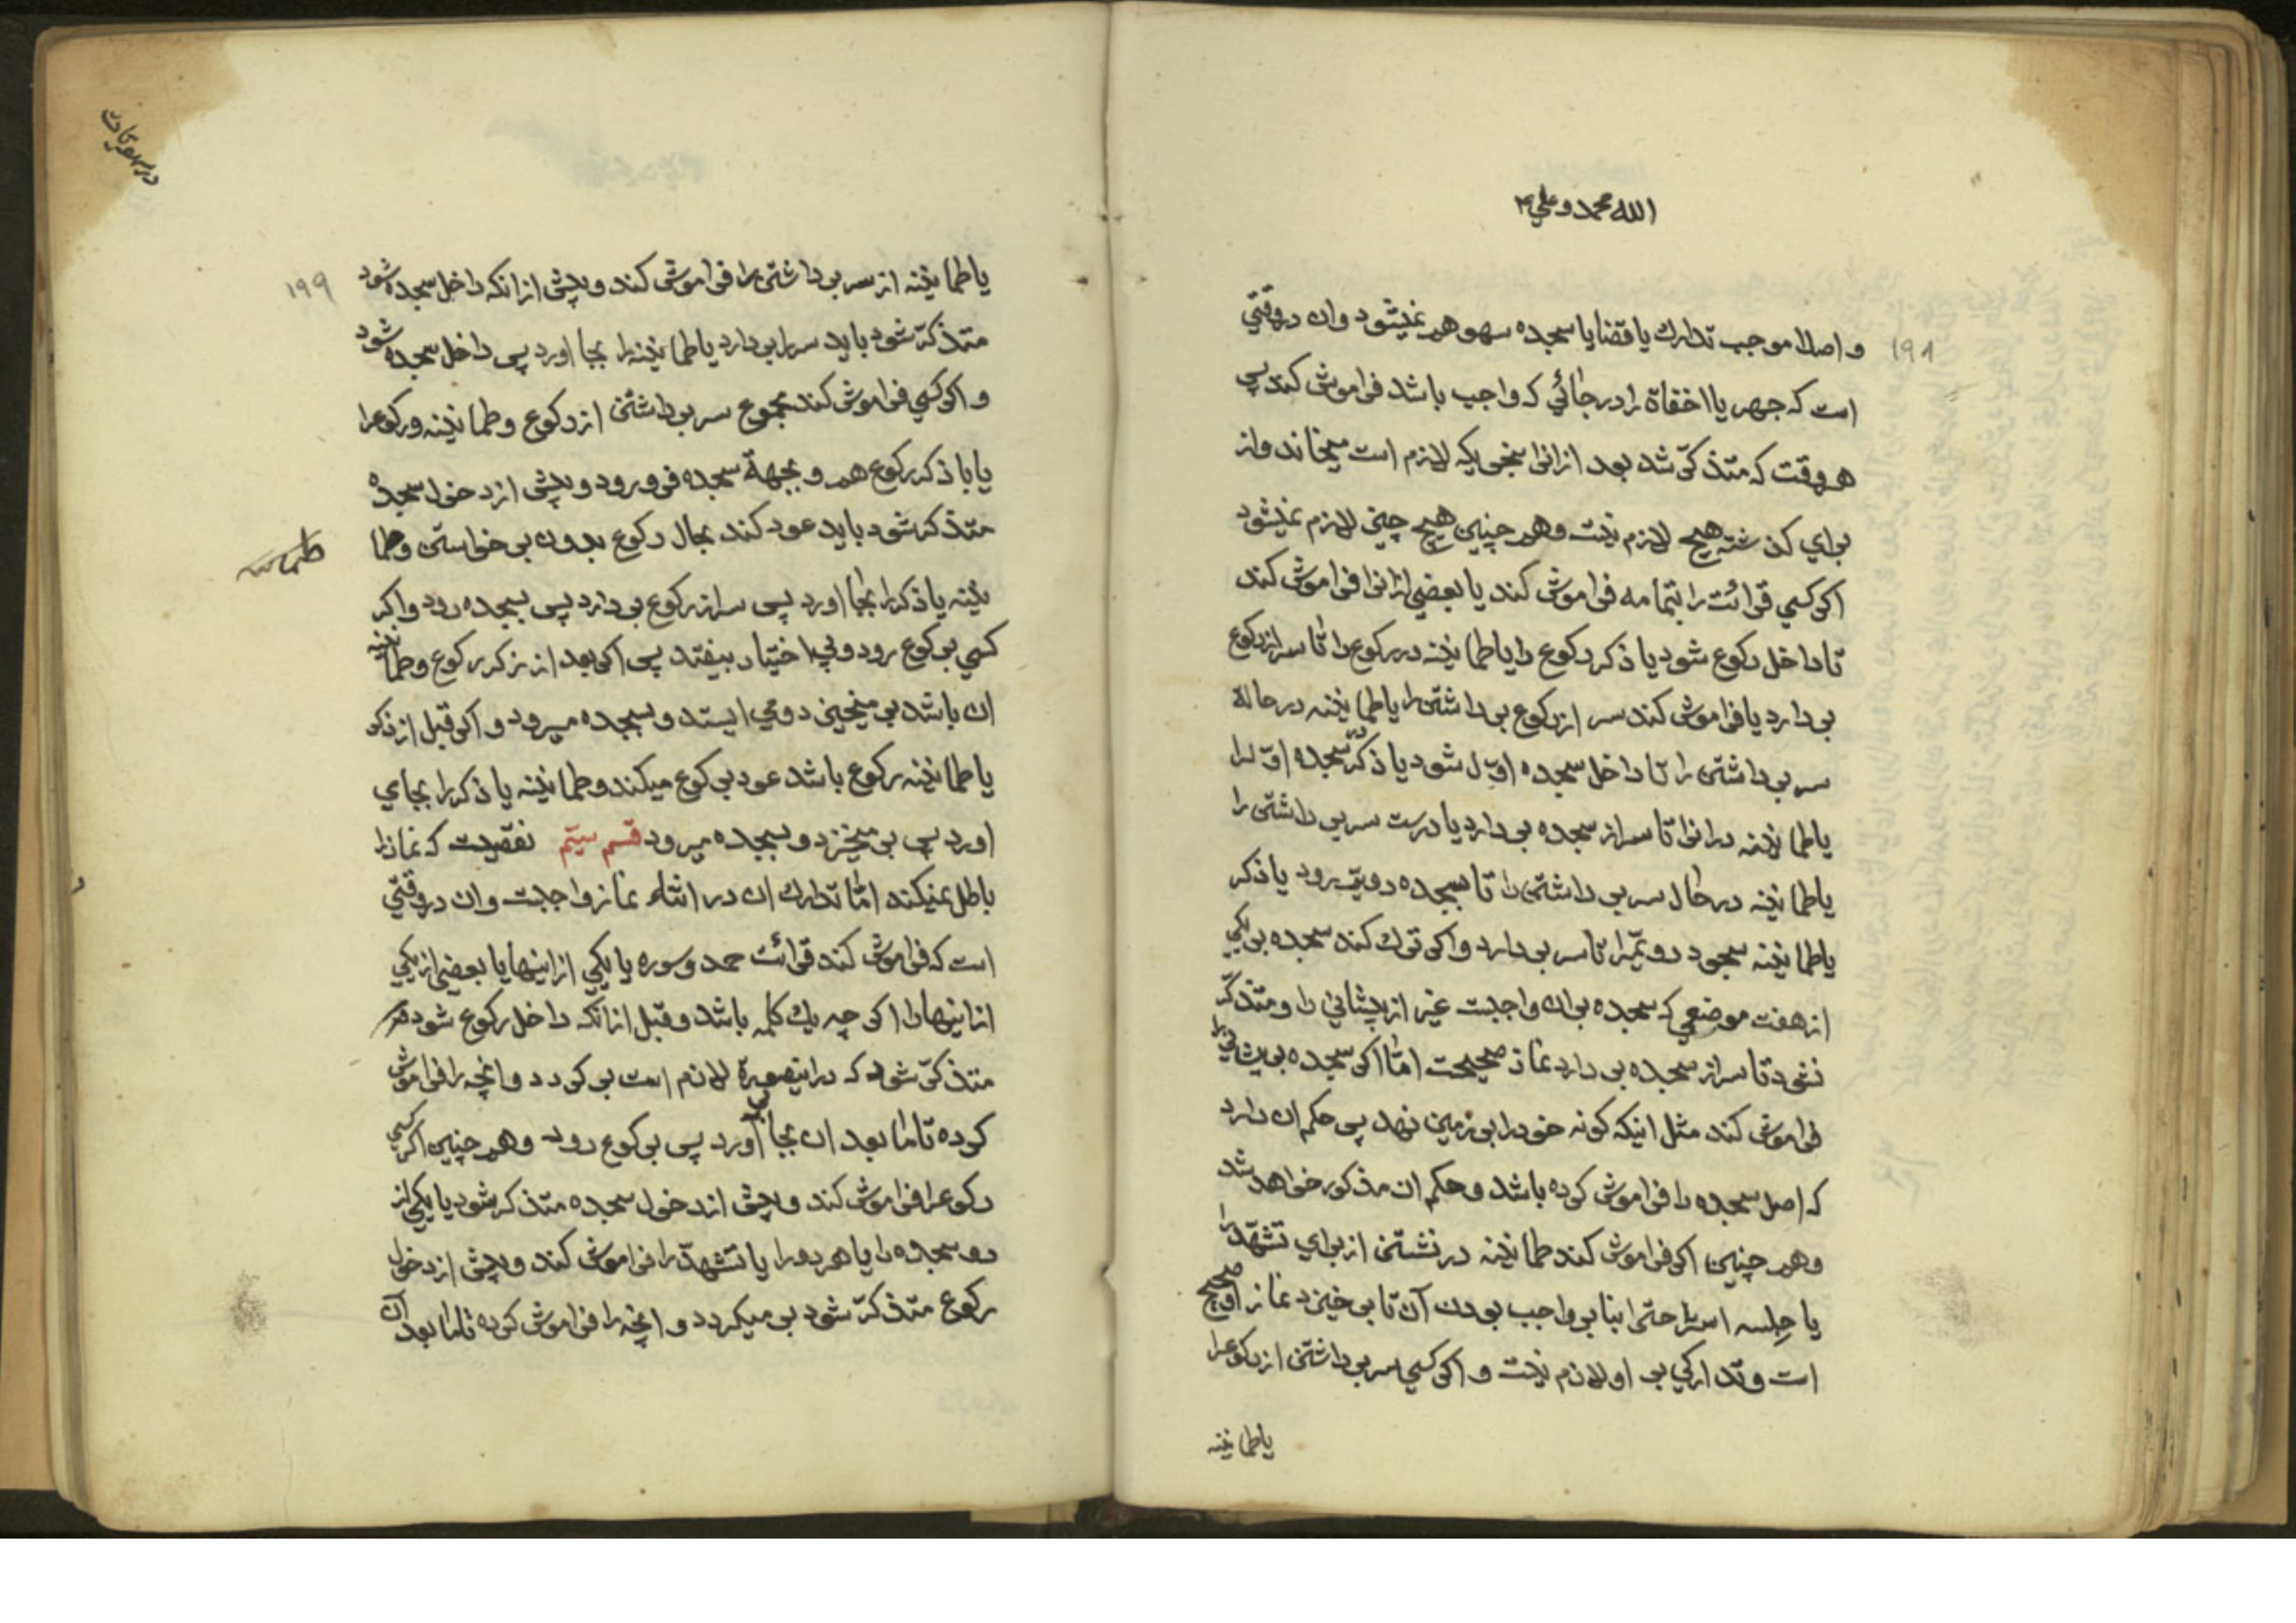 الله محمد و علی ۴
۱۹۸
و اصلا موجب تدارك یا قضا یا سجده سهو هم نمیشود و ان در وقتی
است که جهر یا اخفاة را در جائی که واجب باشد فراموش کند پس
هر وقت که متذکّر شد بعد از انرا بنحویکه لازم است میخاند و از
برای کذشته هیچ لازم نیست و هم چنین هیچ چیز لازم نمیشود
اکر کسی قرائت را بتمامه فراموش کند یا بعضی از انرا فراموش کند
تا داخل رکوع شود یا ذکر رکوع را یا طمانینه در رکوع را تا سر از رکوع
بر دارد یا فراموش کند سر از رکوع بر داشتن را یا طمانینه در حالة
سر بر داشتن را تا داخل سجده اوّل شود یا ذکر در سجده اوّل را
یا طمانینه در انرا تا سر از سجده بر دارد یا درست سر بر داشتن را
یا طمانینه در حال سر بر داشتن را تا بسجده دویّم رود یا ذکر
یا طمانینه سجود دویّم را تا سر بر دارد و اکر ترك کند سجده بر یکی
از هفت موضعی که سجده بر ان واجبست غیر از پیشانی را و متذکّر
نشود تا سر از سجده بر دارد نماز صحیحست امّا اکر سجده بر پیشانی را
فراموش کند مثل اینکه کونه خود را بر زمین نهد پس حکم ان دارد
که اصل سجده را فراموش کرده باشد و حکم ان مذکور خواهد شد
و هم چنین اکر فراموش کند طمانینه در نشستن از برای تشهّد را
یا جلسه استراحتی را بنا بر واجب بودن آن تا بر خیزد نماز او صحیح
است و تدارکی بر او لازم نیست و اکر کسی سر بر داشتن از رکوع را
یا طمانینه
در سهویات
۱۹۹
یا طمانینه از سر بر داشتن را فراموش کند و پیش از انکه داخل سجده شود
متذکّر شود باید سر را بر دارد یا طمانینه را بجا اورد پس داخل سجده شود
و اکر کسی فراموش کند مجموع سر بر داشتن از رکوع و طمانینه و رکوع را
یا با ذکر رکوع هم و بجهة سجده فرو رود و پیش از دخول سجده
متذکر شود باید عود کند بحال رکوع بدون بر خواستن و طما
طمانینه
نینه یا ذکر را بجا اورد پس سر از رکوع بر دارد پس بسجده رود و اکر
کسی برکوع رود و بی اختیار بیفتد پس اکر بعد از ذکر رکوع و طمانینه
ان باشد بر میخیزد و می ایستد و بسجده میرود و اکر قبل از ذکر
یا طمانینه رکوع باشد عود برکوع میکند و طمانینه یا ذکر را بجای
اورد پس بر میخیزد و بسجده میرود قسم سیّم نقصیست که نماز را
باطل نمیکند امّا تدارك ان در اثناء نماز واجبست و ان در وقتی
است که فراموش کند قرائت حمد و سوره یا یکی از اینها یا بعضی از یکی
از اینها را اکر چه یك کلمه باشد و قبل از انکه داخل رکوع شود
متذکّر شود که در اینصورة لازم است بر کردد و انچه را فراموش
کرده تا ما بعد ان بجا آورد پس برکوع رود و هم چنین اکر کسی
رکوع را فراموش کند و پیش از دخول سجده متذکر شود یا یکی از
دو سجده را یا هر دو را یا تشهّد را فراموش کند و پیش از دخول
رکوع متذکّر شود بر میکردد و انچه را فراموش کرده تا ما بعد آن